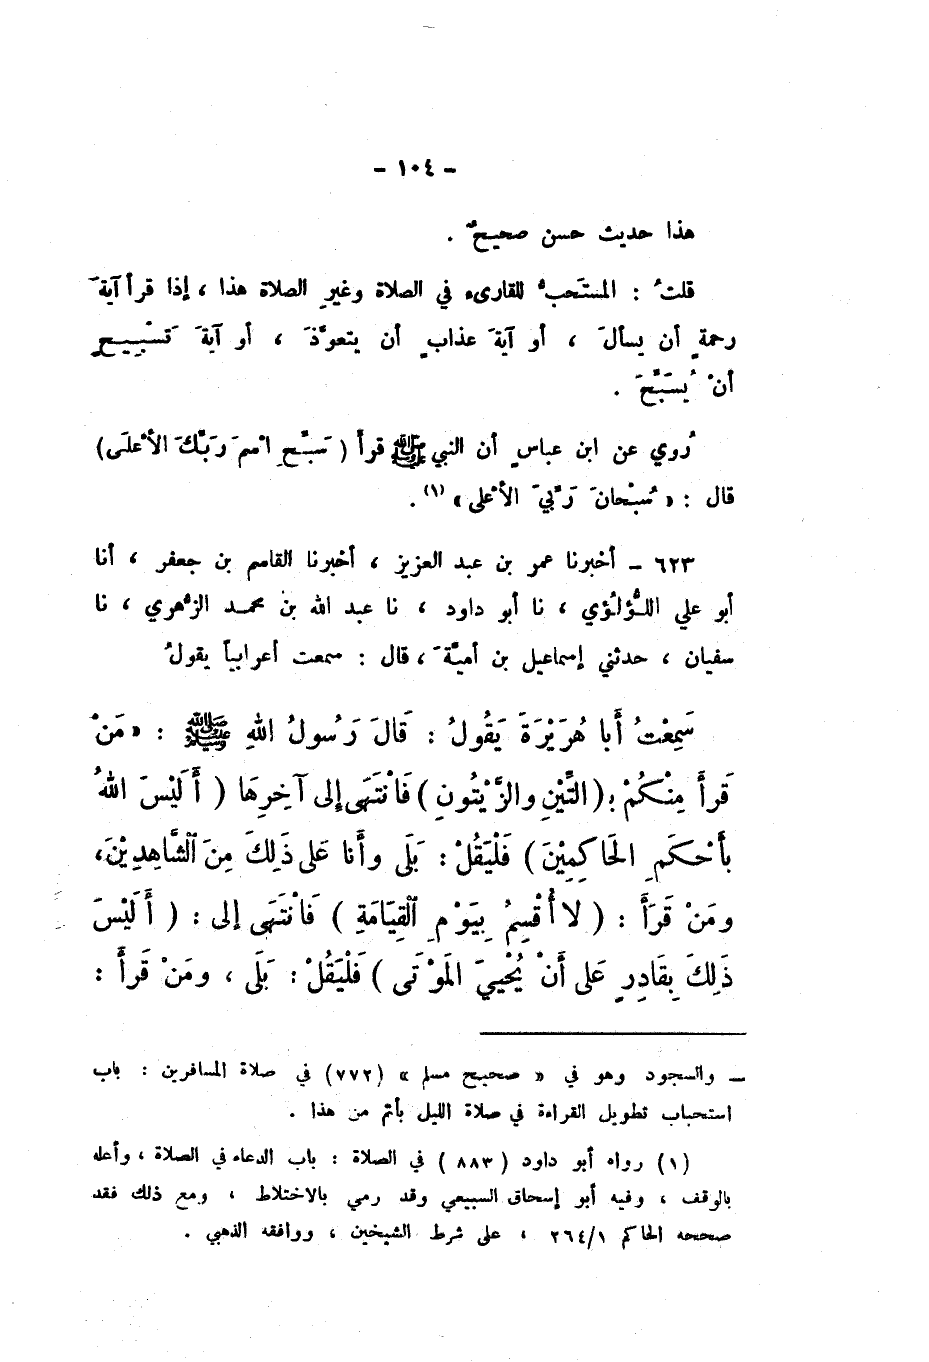 - ١٠٤ -
هذا حديث حسن صحيحٌ .
قلتُ : المستَحبُّ للقارىء في الصلاة وغيرِ الصلاة هذا ، إذا قرأ آيةَ
رحمةٍ أن يسألَ ، أو آيةَ عذابٍ أن يتعوَّذَ ، أو آيةَ تَسْبِيحٍ
أنْ يُسَبِّحَ .
رُوي عن ابن عباسٍ أن النبي ﷺ قرأَ ( سَبِّحِ اسْمَ رَبِّكَ الأَعْلَى )
قال : « سُبْحانَ رَبِّيَ الأَعْلى » (١) .
٦٢٣ – أخبرنا عمر بن عبد العزيز ، أخبرنا القاسم بن جعفر ، أنا
أبو علي اللُّؤلُؤي ، نا أبو داود ، نا عبد الله بنُ محمد الزُّهري ، نا
سفيان ، حدثني إسماعيل بن أميَّةَ ، قال : سمعت أعرابياً يقولُ
سَمِعْتُ أَبا هُرَيْرَةَ يَقُولُ : قَالَ رَسُولُ اللهِ ﷺ : « مَنْ
قَرأَ مِنْكُمْ بـ ( التِّيْنِ والزَّيْتُونِ ) فَانْتَهَى إلى آخِرِهَا ( أَلَيْسَ اللهُ
بأَحْكَمِ الحَاكِمِيْنَ ) فَلْيَقُلْ : بَلَى وأَنا عَلى ذَلِكَ مِنَ الشَّاهِدِيْنَ ،
ومَنْ قَرَأَ : ( لا أُقْسِمُ بِيَوْمِ القِيَامَةِ ) فَانْتَهَى إلى : ( أَلَيْسَ
ذَلِكَ بِقَادِرٍ عَلى أَنْ يُحْيِيَ المَوْتَى ) فَلْيَقُلْ : بَلَى ، ومَنْ قَرأَ :
– والسجود وهو في « صحيح مسلم » (٧٧٢) في صلاة المسافرين : باب
استحباب تطويل القراءة في صلاة الليل بأتم من هذا .
(١) رواه أبو داود ( ٨٨٣ ) في الصلاة : باب الدعاء في الصلاة ، وأعله
بالوقف ، وفيه أبو إسحاق السبيعي وقد رمي بالاختلاط ، ومع ذلك فقد
صححه الحاكم ٢٦٤/١ ، على شرط الشيخين ، ووافقه الذهبي .